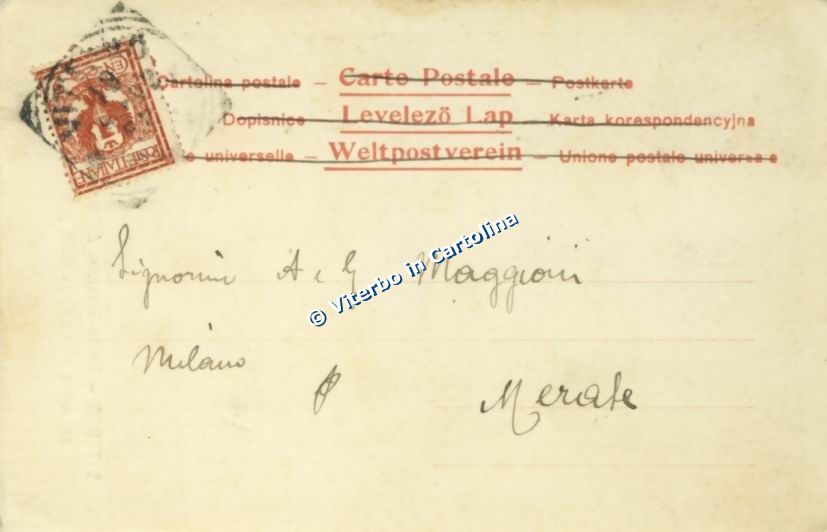 Cartolina postale – Carte Postale – Postkarte
Dopisnice Levelezö Lap – Karta korespondencyjna
universelle – Weltpostverein – Unione postale universale
POSTE ITALIANE
Signorini A e G Maggioni
© Viterbo in Cartolina
Milano
Merate